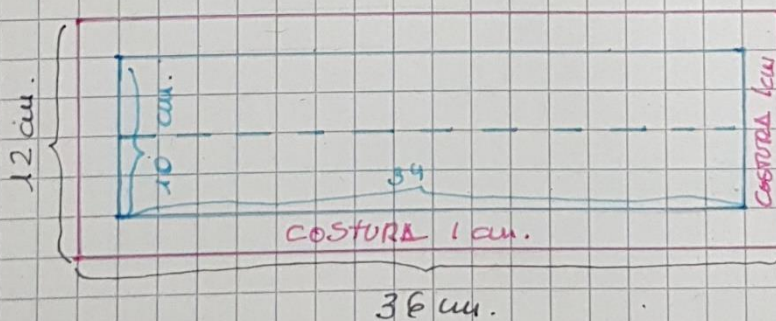 12 cm.
10 cm.
34
COSTURA 1 cm.
COSTURA 1cm
36 cm.